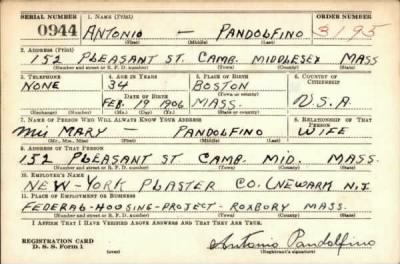 SERIAL NUMBER 1. NAME (Print) ORDER NUMBER
0944 ANTONIO — PANDOLFINO 3195
(First) (Middle) (Last)
2. ADDRESS (Print)
152 PLEASANT ST. CAMB. MIDDLESEX MASS
(Number and street or R. F. D. number) (Town) (County) (State)
3. TELEPHONE 4. AGE IN YEARS 5. PLACE OF BIRTH 6. COUNTRY OF CITIZENSHIP
NONE 34 BOSTON
DATE OF BIRTH (Town or county)
FEB. 19 1906 MASS. U.S.A
(Exchange) (Number) (Mo.) (Day) (Yr.) (State or country)
7. NAME OF PERSON WHO WILL ALWAYS KNOW YOUR ADDRESS 8. RELATIONSHIP OF THAT PERSON
Mrs MARY — PANDOLFINO WIFE
(Mr., Mrs., Miss) (First) (Middle) (Last)
9. ADDRESS OF THAT PERSON
152 PLEASANT ST CAMB. MID. MASS.
(Number and street or R. F. D. number) (Town) (County) (State)
10. EMPLOYER'S NAME
NEW-YORK PLASTER CO. (NEWARK N.J.
11. PLACE OF EMPLOYMENT OR BUSINESS
FEDERAL-HOUSING-PROJECT- ROXBURY MASS.
(Number and street or R. F. D. number) (Town) (County) (State)
I AFFIRM THAT I HAVE VERIFIED ABOVE ANSWERS AND THAT THEY ARE TRUE.
REGISTRATION CARD
D. S. S. Form 1 (over) Antonio Pandolfino
(Registrant's signature)